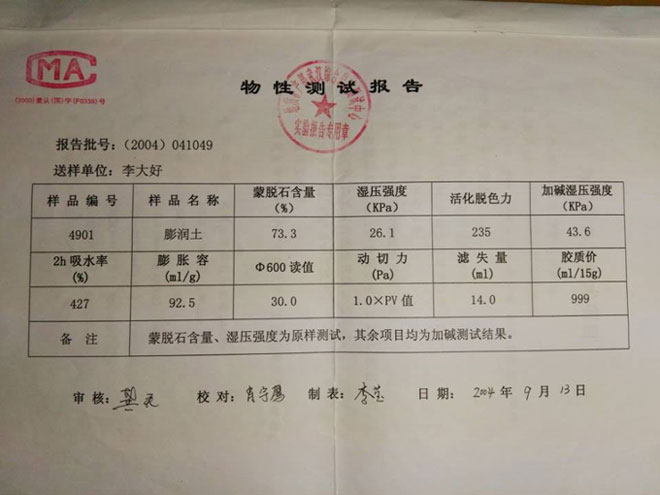 CMA
(2000)量认(国)字(F0336)号
物性测试报告
实验报告专用章
报告批号：(2004) 041049
送样单位：李大好
样品编号 样品名称 蒙脱石含量(%) 湿压强度(KPa) 活化脱色力 加碱湿压强度(KPa)
4901 膨润土 73.3 26.1 235 43.6
2h吸水率(%) 膨胀容(ml/g) Φ600读值 动切力(Pa) 滤失量(ml) 胶质价(ml/15g)
427 92.5 30.0 1.0×PV值 14.0 999
备注 蒙脱石含量、湿压强度为原样测试，其余项目均为加碱测试结果。
审核： 校对： 制表： 日期：2004年9月13日